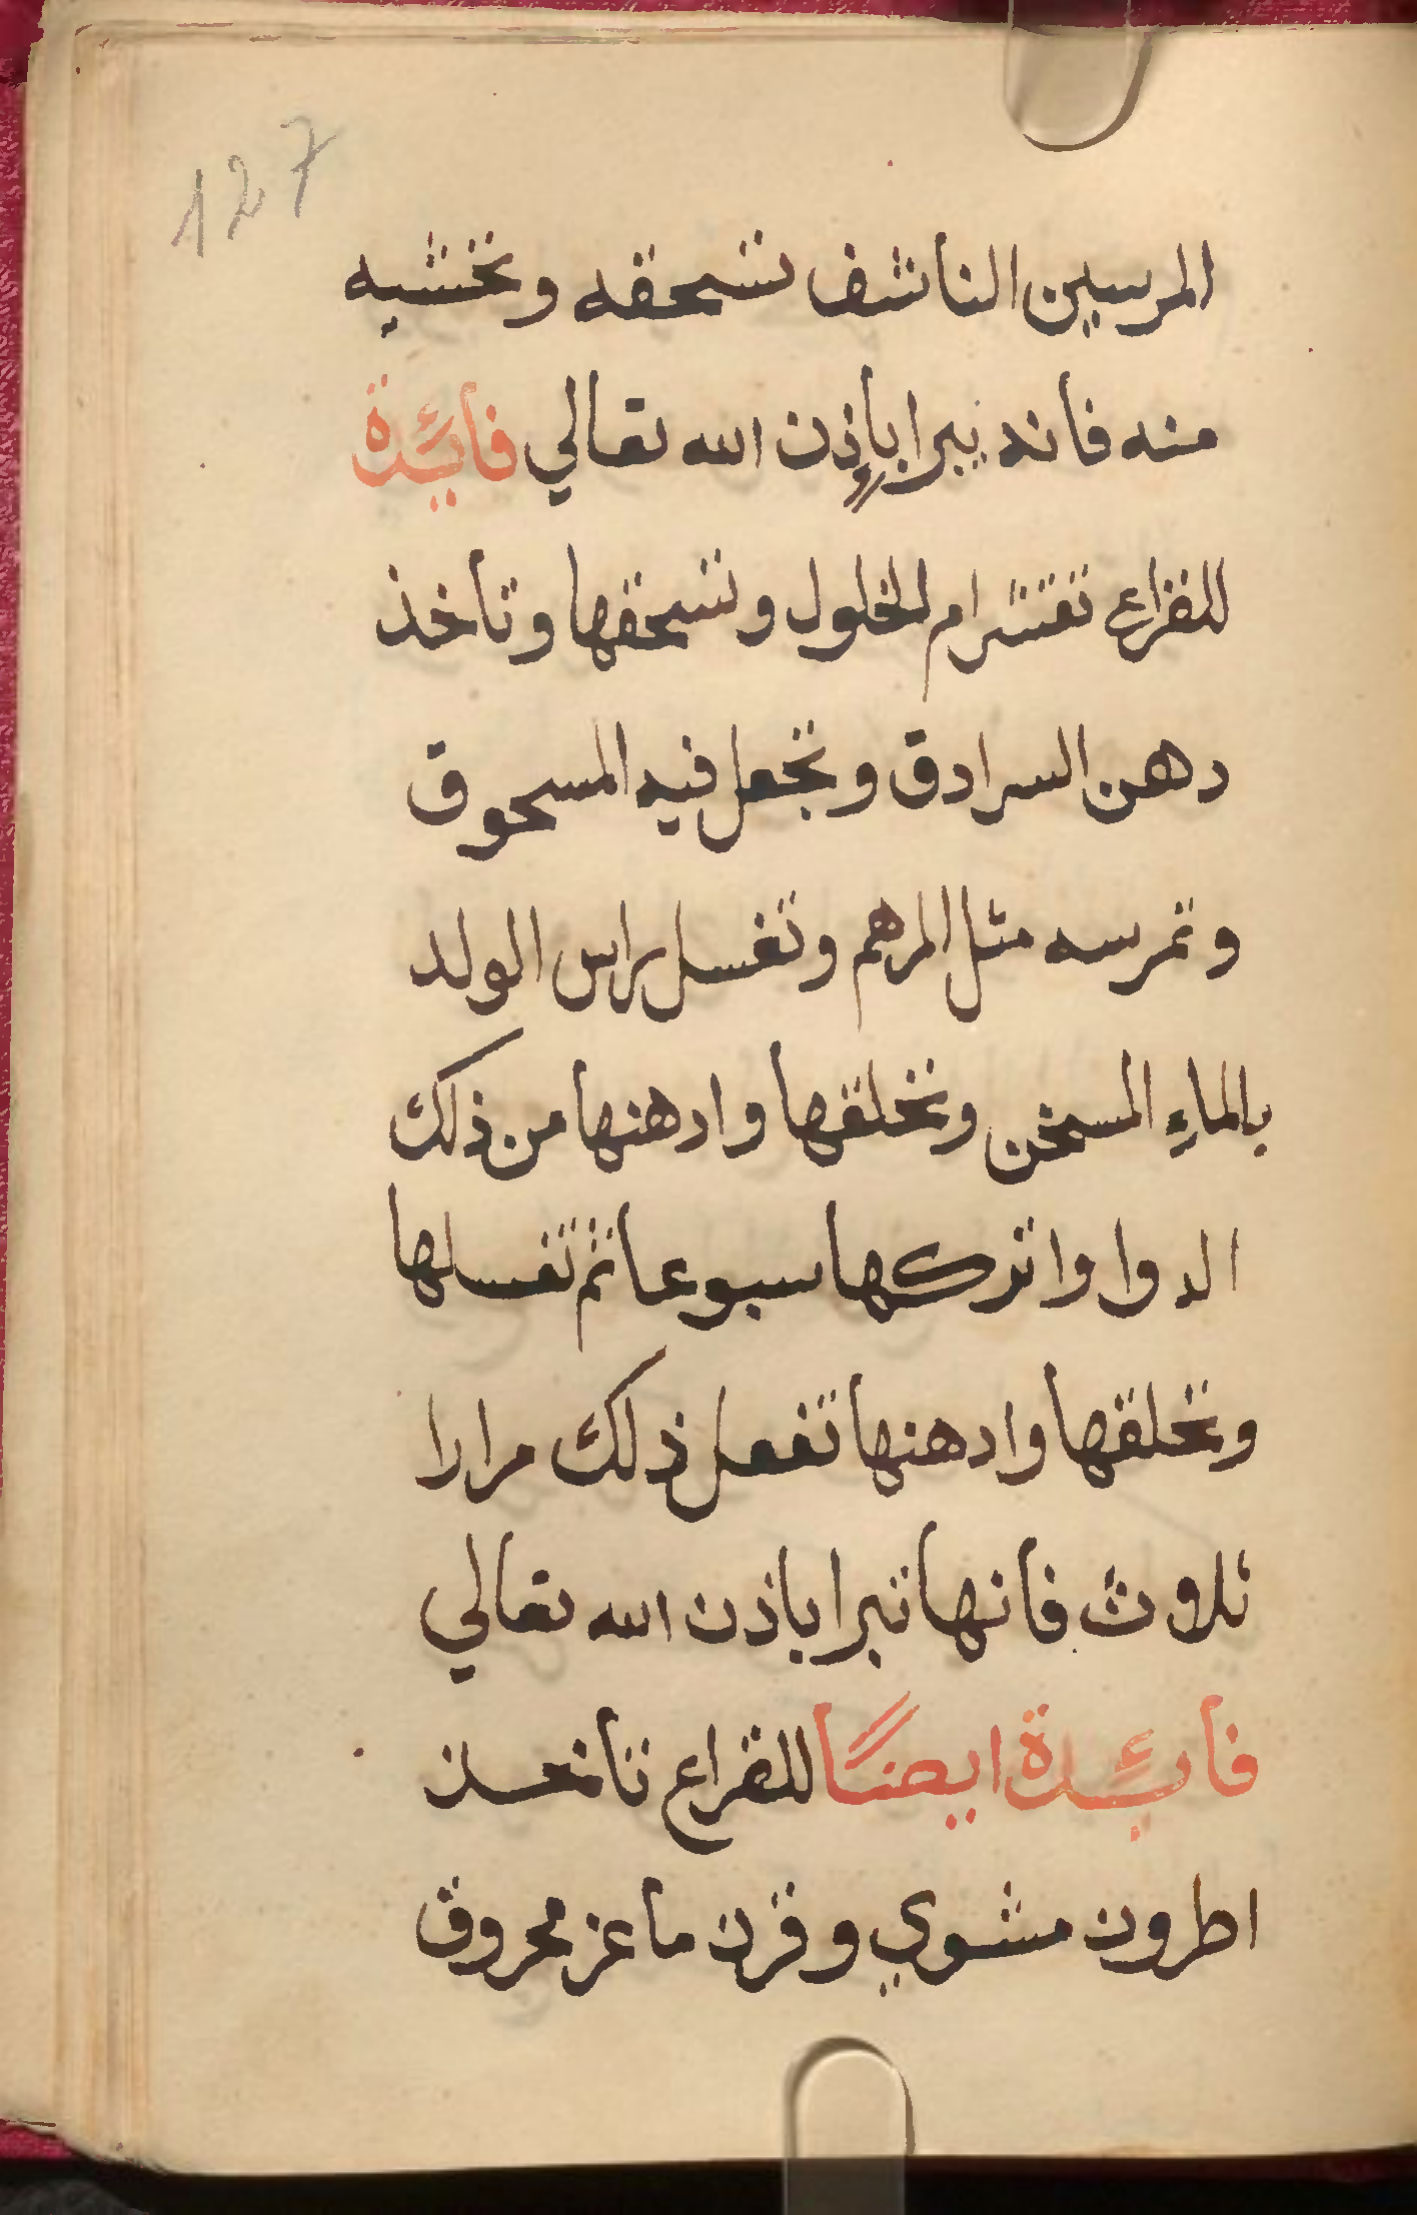 127
المرسين الناشف تسحقه وتخشيه
منه فانه يبرا بإذن الله تعالي فائدة
للقراع تقشر ام الخلول وتسحقها وتاخذ
دهن السرادق وتجعل فيه المسحوق
وتمرسه مثل المرهم وتغسل راس الولد
بالماءِ المسخن وتخلقها وادهنها من ذلك
الدوا واتركها سبوعا ثم تغسلها
وتخلقها وادهنها تفعل ذلك مرارا
ثلاوث فانها تبرا باذن الله تعالي
فائدة ايضًا للقراع تاخذ
اطرون مشوي وقرن ماعز محروق